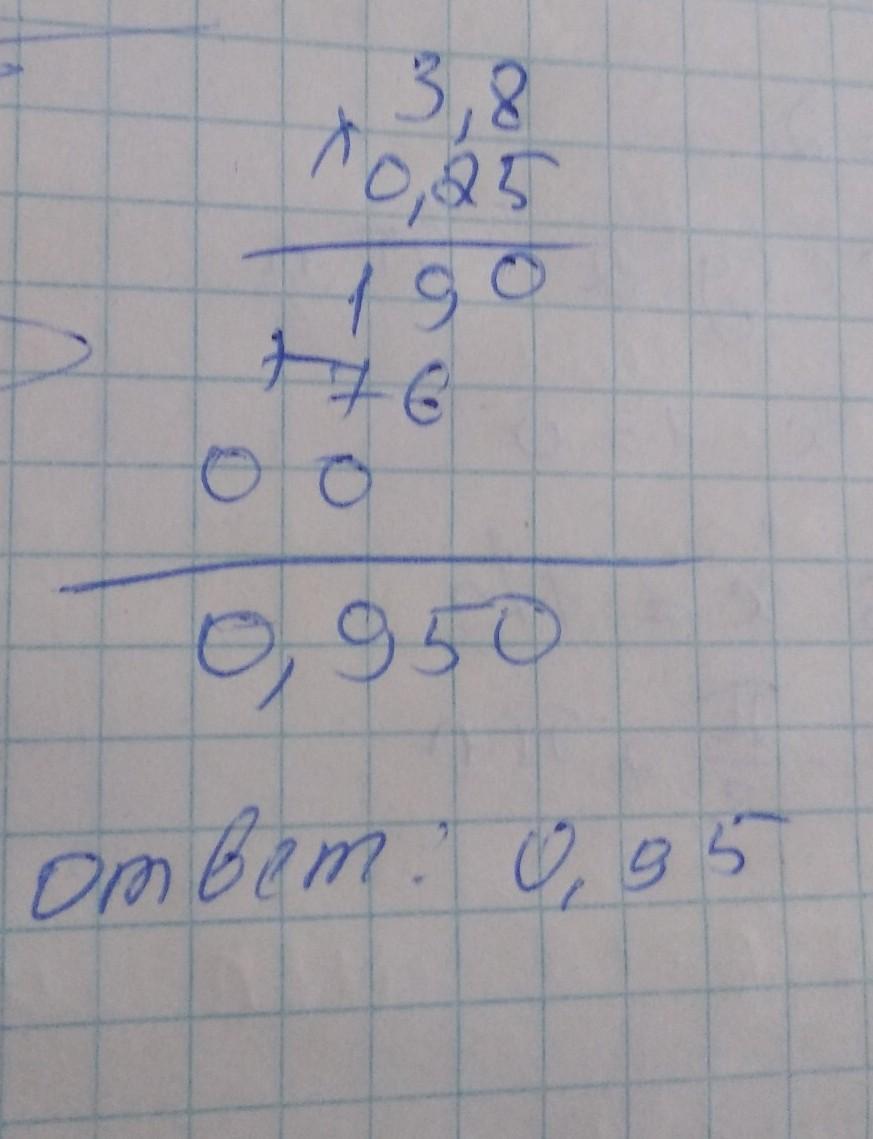 3,8
× 0,25
190
+ 76
00
0,950
ответ: 0,95